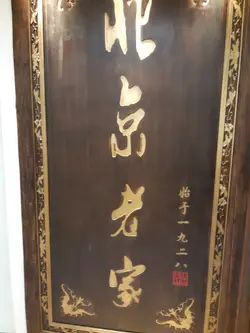 北京老家
始于一九二八